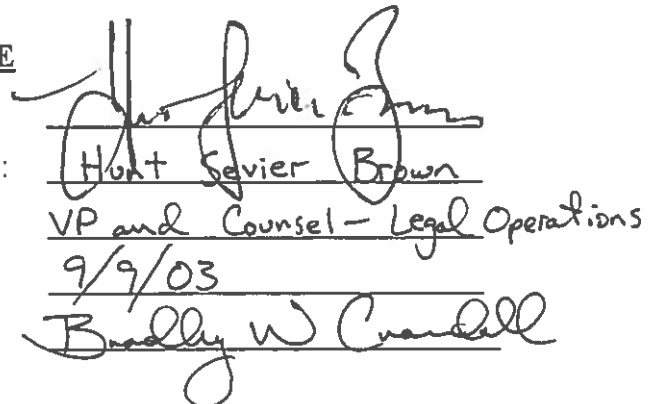 E
Hunt Sevier Brown
: Hunt Sevier Brown
VP and Counsel - Legal Operations
9/9/03
Bradley W Crandall